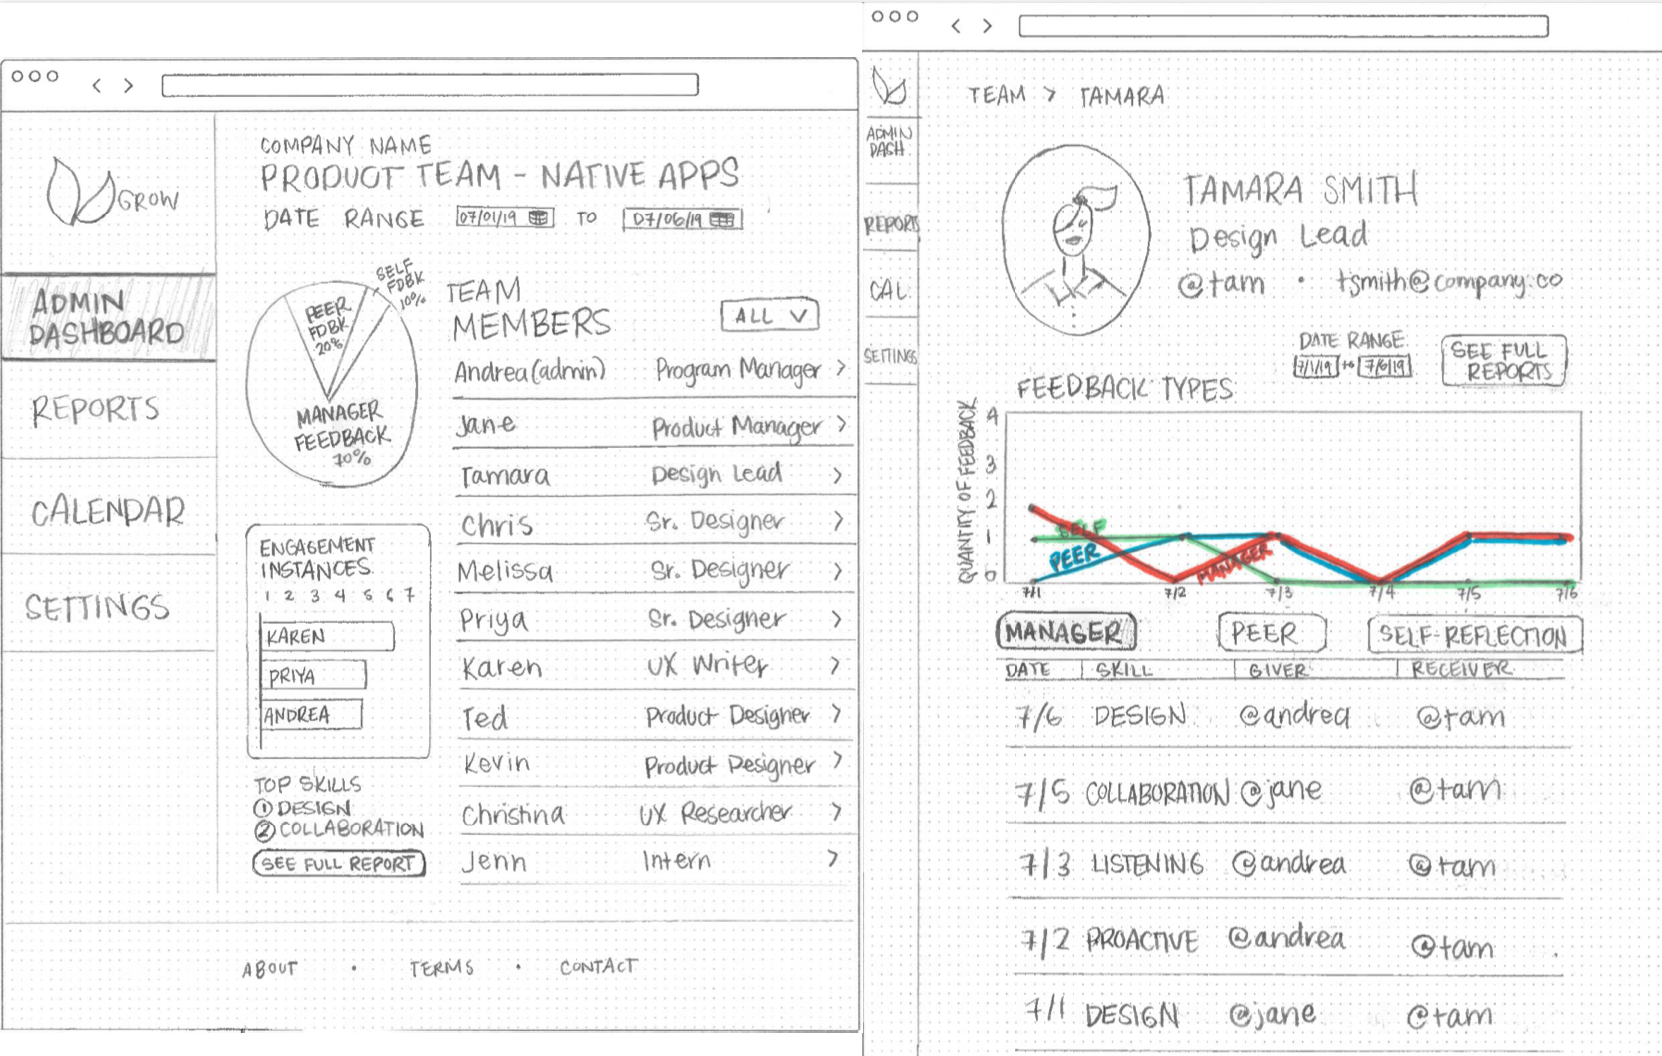 GROW
ADMIN
DASHBOARD
REPORTS
CALENDAR
SETTINGS
COMPANY NAME
PRODUCT TEAM - NATIVE APPS
DATE RANGE 07/01/19 TO 07/06/19
SELF
FDBK
10%
PEER
FDBK
20%
MANAGER
FEEDBACK
70%
ENGAGEMENT
INSTANCES
1 2 3 4 5 6 7
KAREN
PRIYA
ANDREA
TOP SKILLS
1 DESIGN
2 COLLABORATION
SEE FULL REPORT
TEAM
MEMBERS
ALL
Andrea (admin) Program Manager >
Jane Product Manager >
Tamara Design Lead >
Chris Sr. Designer >
Melissa Sr. Designer >
Priya Sr. Designer >
Karen UX Writer >
Ted Product Designer >
Kevin Product Designer >
Christina UX Researcher >
Jenn Intern >
ABOUT • TERMS • CONTACT
ADMIN
DASH.
REPORTS
CAL
SETTINGS
TEAM > TAMARA
TAMARA SMITH
Design Lead
@tam • tsmith@company.co
DATE RANGE
7/1/19 to 7/6/19
SEE FULL
REPORTS
FEEDBACK TYPES
QUANTITY OF FEEDBACK
4
3
2
1
0
SELF
PEER
MANAGER
7/1 7/2 7/3 7/4 7/5 7/6
MANAGER PEER SELF-REFLECTION
DATE SKILL GIVER RECEIVER
7/6 DESIGN @andrea @tam
7/5 COLLABORATION @jane @tam
7/3 LISTENING @andrea @tam
7/2 PROACTIVE @andrea @tam
7/1 DESIGN @jane @tam